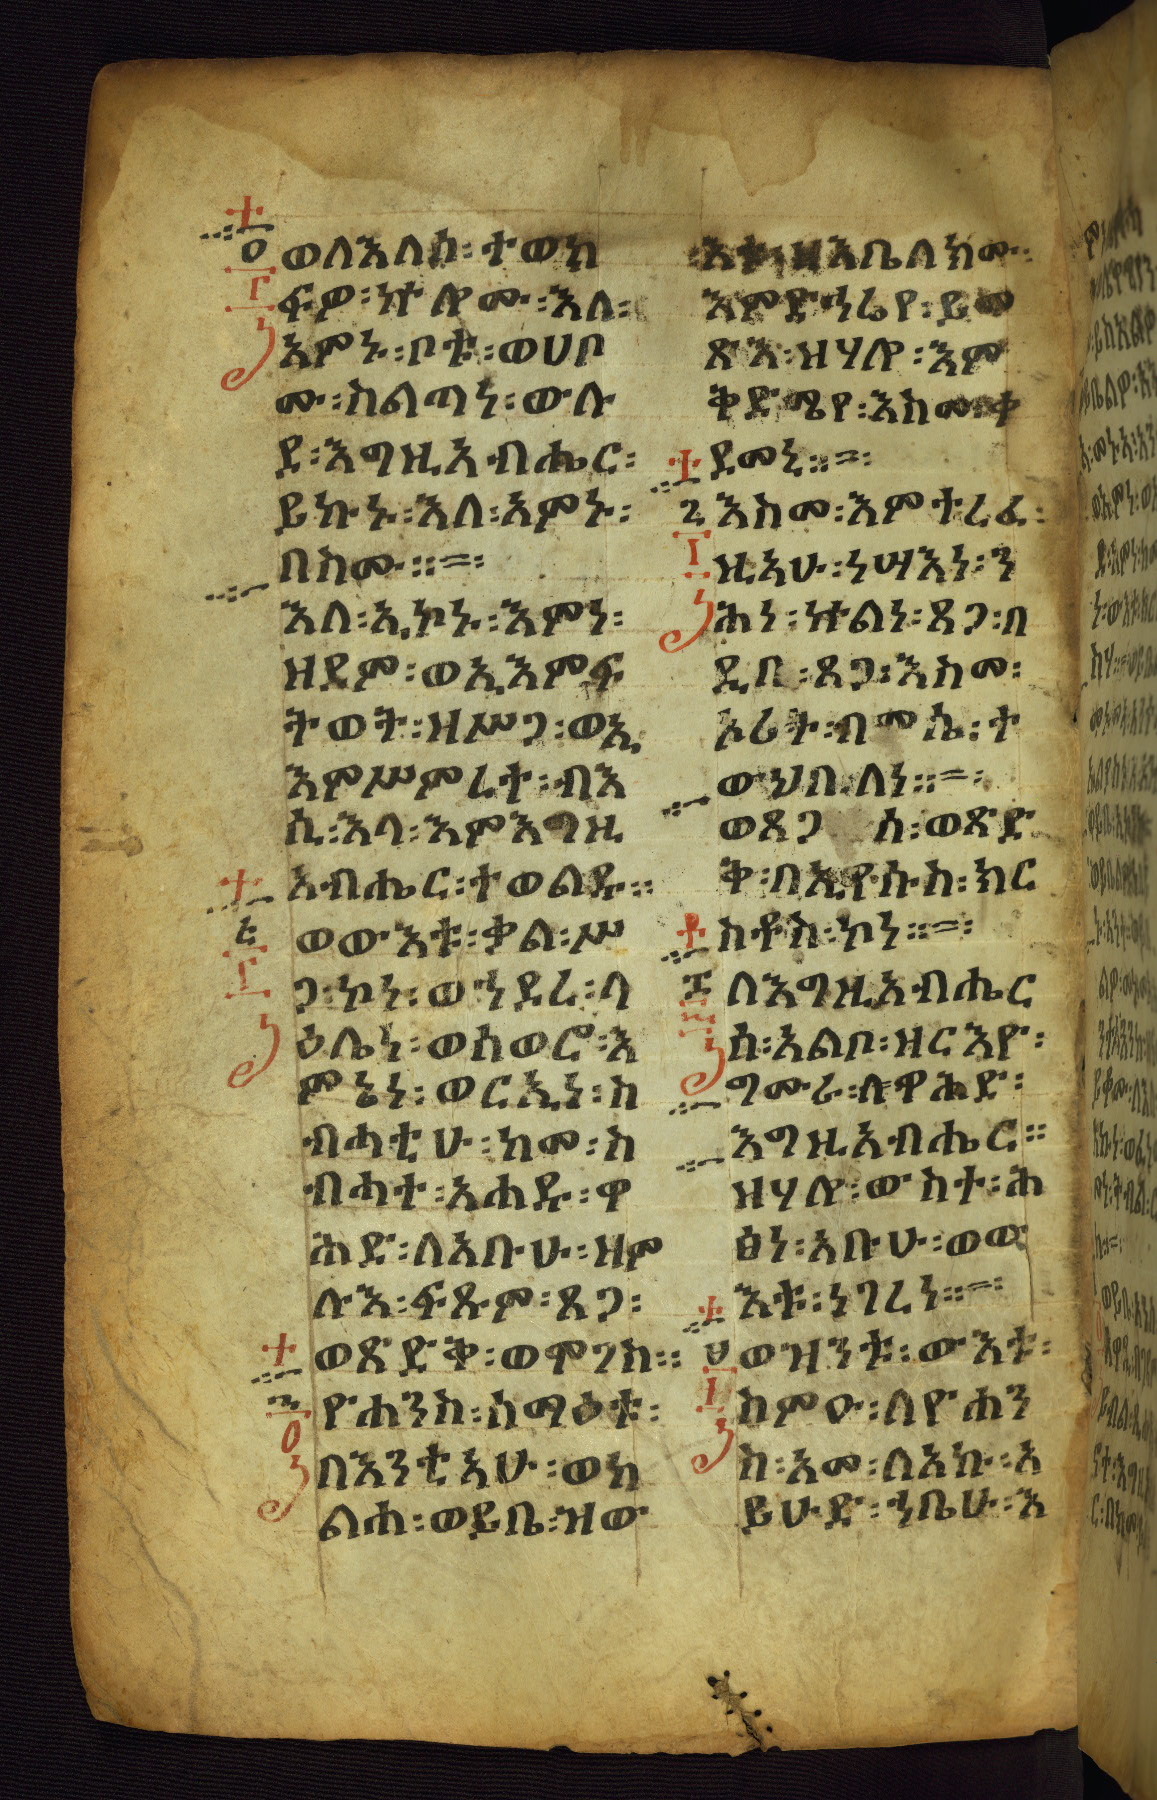 ወለእለሰ፡ተወክ
ፍዎ፡ኵሎሙ፡እለ፡
አምኑ፡ቦቱ፡ወሀቦ
ሙ፡ስልጣነ፡ውሉ
ደ፡እግዚአብሔር፡
ይኩኑ፡እለ፡አምኑ፡
በስሙ።=፡
እለ፡ኢኮኑ፡እምነ፡
ዘደም፡ወኢእምፍ
ትወት፡ዘሥጋ፡ወኢ
እምሥምረተ፡ብእ
ሲ፡እላ፡እምእግዚ
አብሔር፡ተወልዱ።
ወውእቱ፡ቃል፡ሥ
ጋ፡ኮነ፡ወኀደረ፡ላ
ዕሌነ፡ወሰወሮ፡እ
ምኔነ፡ወርኢነ፡ስ
ብሓቲሁ፡ከመ፡ስ
ብሓተ፡አሐዱ፡ዋ
ሕድ፡ለአቡሁ፡ዘም
ሉእ፡ፍጹም፡ጸጋ፡
ወጽድቅ፡ወሞገስ።
ዮሐንስ፡ሰማዕቱ፡
በእንቲአሁ፡ወከ
ልሐ፡ወይቤ፡ዝው
እቱ፡ዘእቤለክሙ፡
እምድኅሬየ፡ይመ
ጽእ፡ዝሃሎ፡እም
ቅድሜየ፡እስመ፡ቀ
ደመኒ።=፡
እስመ፡እምተረፈ፡
ዚአሁ፡ነሣእነ፡ን
ሕነ፡ኵልነ፡ጸጋ፡በ
ዲበ፡ጸጋ፡እስመ፡
ኦሪት፡በሙሴ፡ተ
ውህበ፡ለነ።=፡
ወጸጋ ሰ፡ወጽድ
ቅ፡በኢየሱስ፡ክር
ስቶስ፡ኮነ።=፡
ለእግዚአብሔር
ሰ፡አልቦ፡ዘርእዮ፡
ግሙራ፡ለዋሕድ፡
እግዚአብሔር።
ዘሃሎ፡ውስተ፡ሕ
ፅነ፡አቡሁ፡ወው
እቱ፡ነገረነ።=፡
ወዝንቱ፡ውእቱ፡
ስምዑ፡ለዮሐን
ስ፡አመ፡ለአኩ፡አ
ይሁድ፡ኀቤሁ፡እ